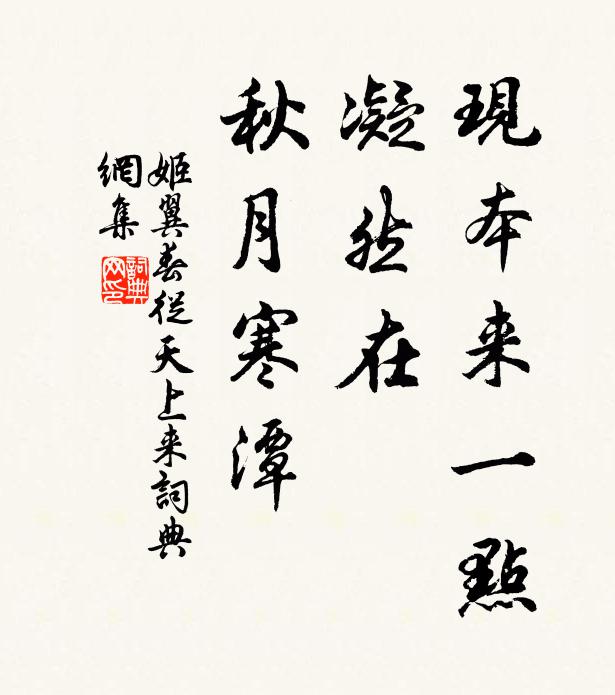 現本来一點
凝然在
秋月寒潭
姬翼春從天上来詞典
網集
詞典
网印